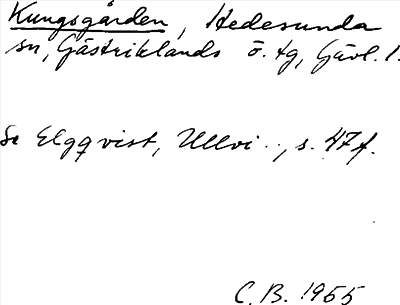 Kungsgården, Hedesunda
sn, Gästriklands ö. tg, Gävl. l.
Se Elgqvist, Ullvi .., s. 47 f.
C.B. 1955